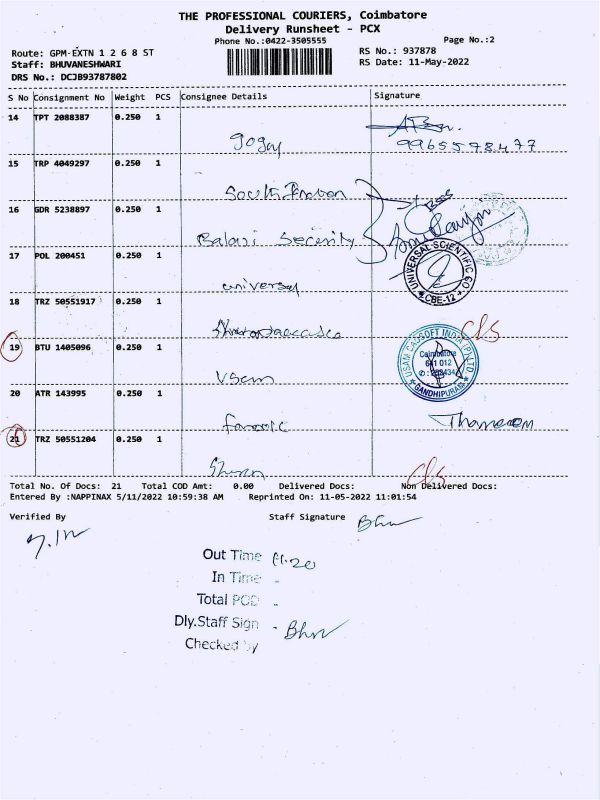 THE PROFESSIONAL COURIERS, Coimbatore
Delivery Runsheet - PCX
Phone No.:0422-3505555 Page No.:2
Route: GPM-EXTN 1 2 6 8 ST RS No.: 937878
Staff: BHUVANESHWARI RS Date: 11-May-2022
DRS No.: DCJB93787802
S No Consignment No Weight PCS Consignee Details Signature
14 TPT 2088387 0.250 1
9965578477
15 TRP 4049297 0.250 1
South Indian
16 GDR 5238897 0.250 1
Balaji Security
17 POL 200451 0.250 1
UNIVERSAL SCIENTIFIC CO
CBE-12
universal
18 TRZ 50551917 0.250 1
19 BTU 1405096 0.250 1
USAM CADSOFT INDIA (P) LTD
Coimbatore
641 012
GANDHIPURAM
Vsam
20 ATR 143995 0.250 1
21 TRZ 50551204 0.250 1
Total No. Of Docs: 21 Total COD Amt: 0.00 Delivered Docs: Non Delivered Docs:
Entered By :NAPPINAX 5/11/2022 10:59:38 AM Reprinted On: 11-05-2022 11:01:54
Verified By Staff Signature
Out Time 11.20
In Time
Total POD
Dly.Staff Sign
Checked by